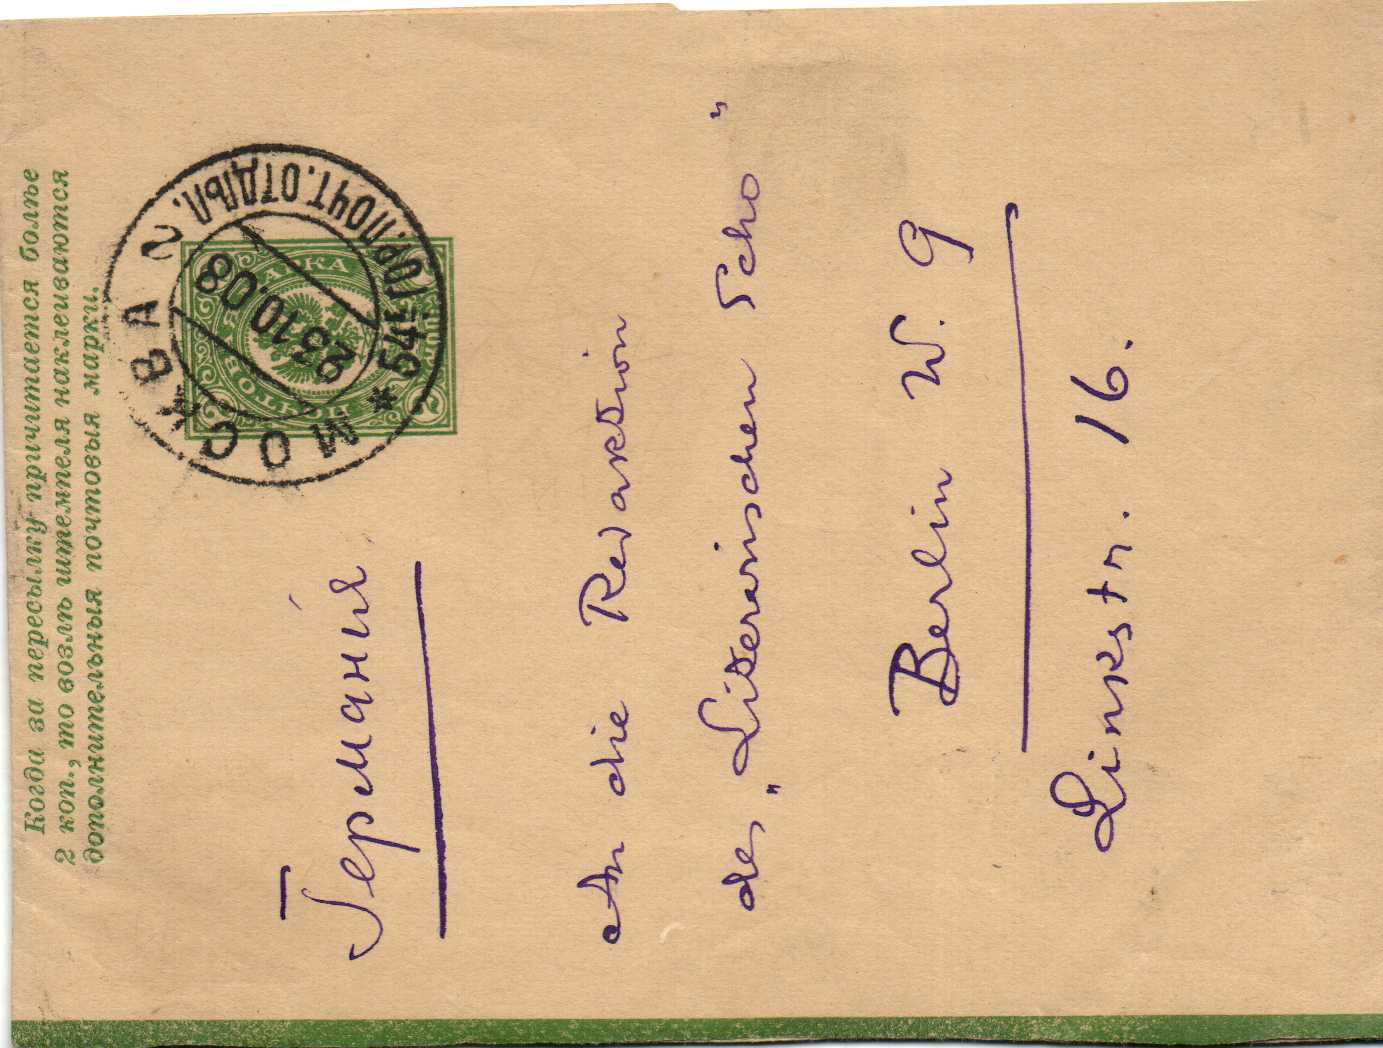 Когда за пересылку причитается болѣе
2 коп., то возлѣ штемпеля наклеиваются
дополнительныя почтовыя марки.
МОСКВА 2
23.10.08
* 54Е ГОР. ПОЧТ. ОТДѢЛ.
ПОЧТОВ МАРКА
2
Германія
An die Redaktion
des „Literarischen Echo"
Berlin W. 9
Linkstr. 16.